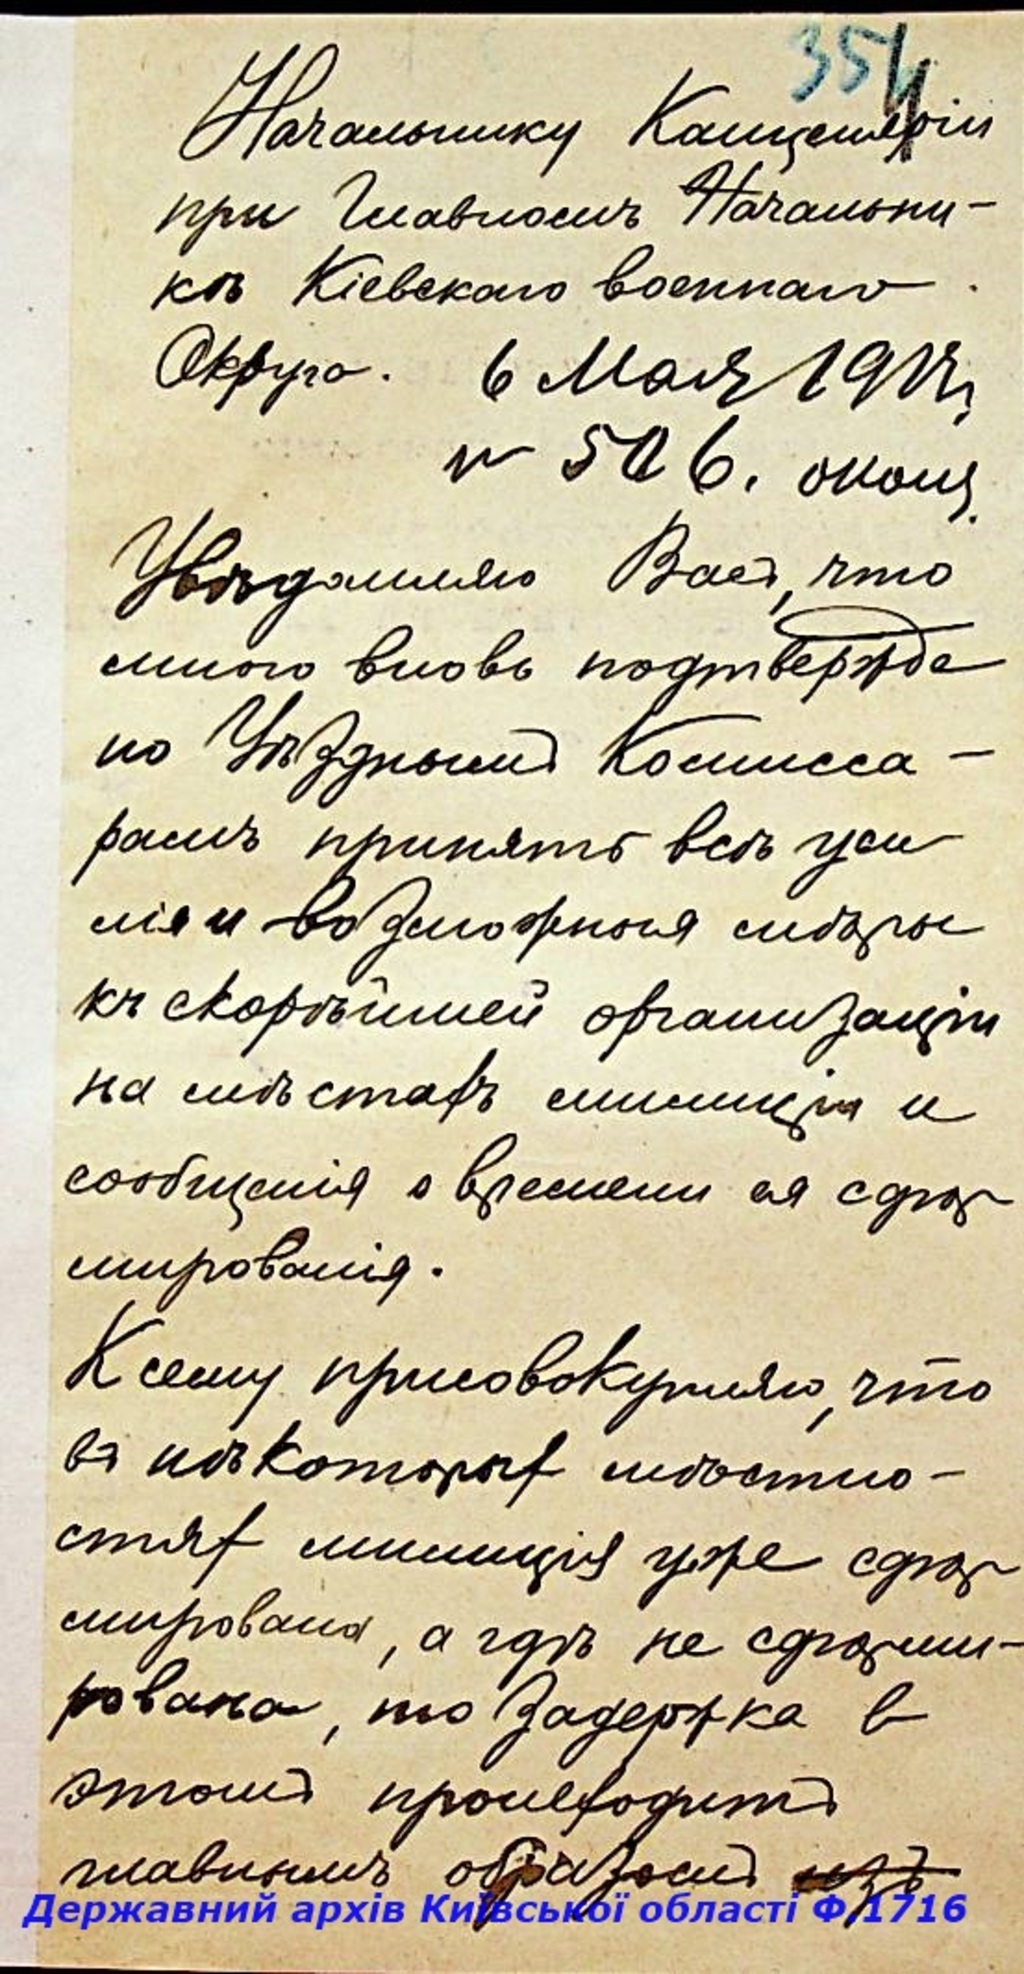 354
Начальнику Канцеляріи
при Главномъ Начальни-
кѣ Кіевскаго военнаго
Округа. 6 Мая 1917г.
№ 506.
Увѣдомляю Васъ, что
мною вновь подтвержде
но Уѣзднымъ Комисса-
рамъ принять всѣ уси
лія и возможныя мѣры
къ скорѣйшей организаціи
на мѣстахъ милиціи и
сообщенія о времени ея сфор
мированія.
К сему присовокупляю, что
въ нѣкоторых мѣстно-
стях милиція уже сфор
мирована, а гдѣ не сформи-
рована, то задержка в
этомъ происходитъ
главнымъ образомъ изъ
Державний архів Київської області Ф.1716